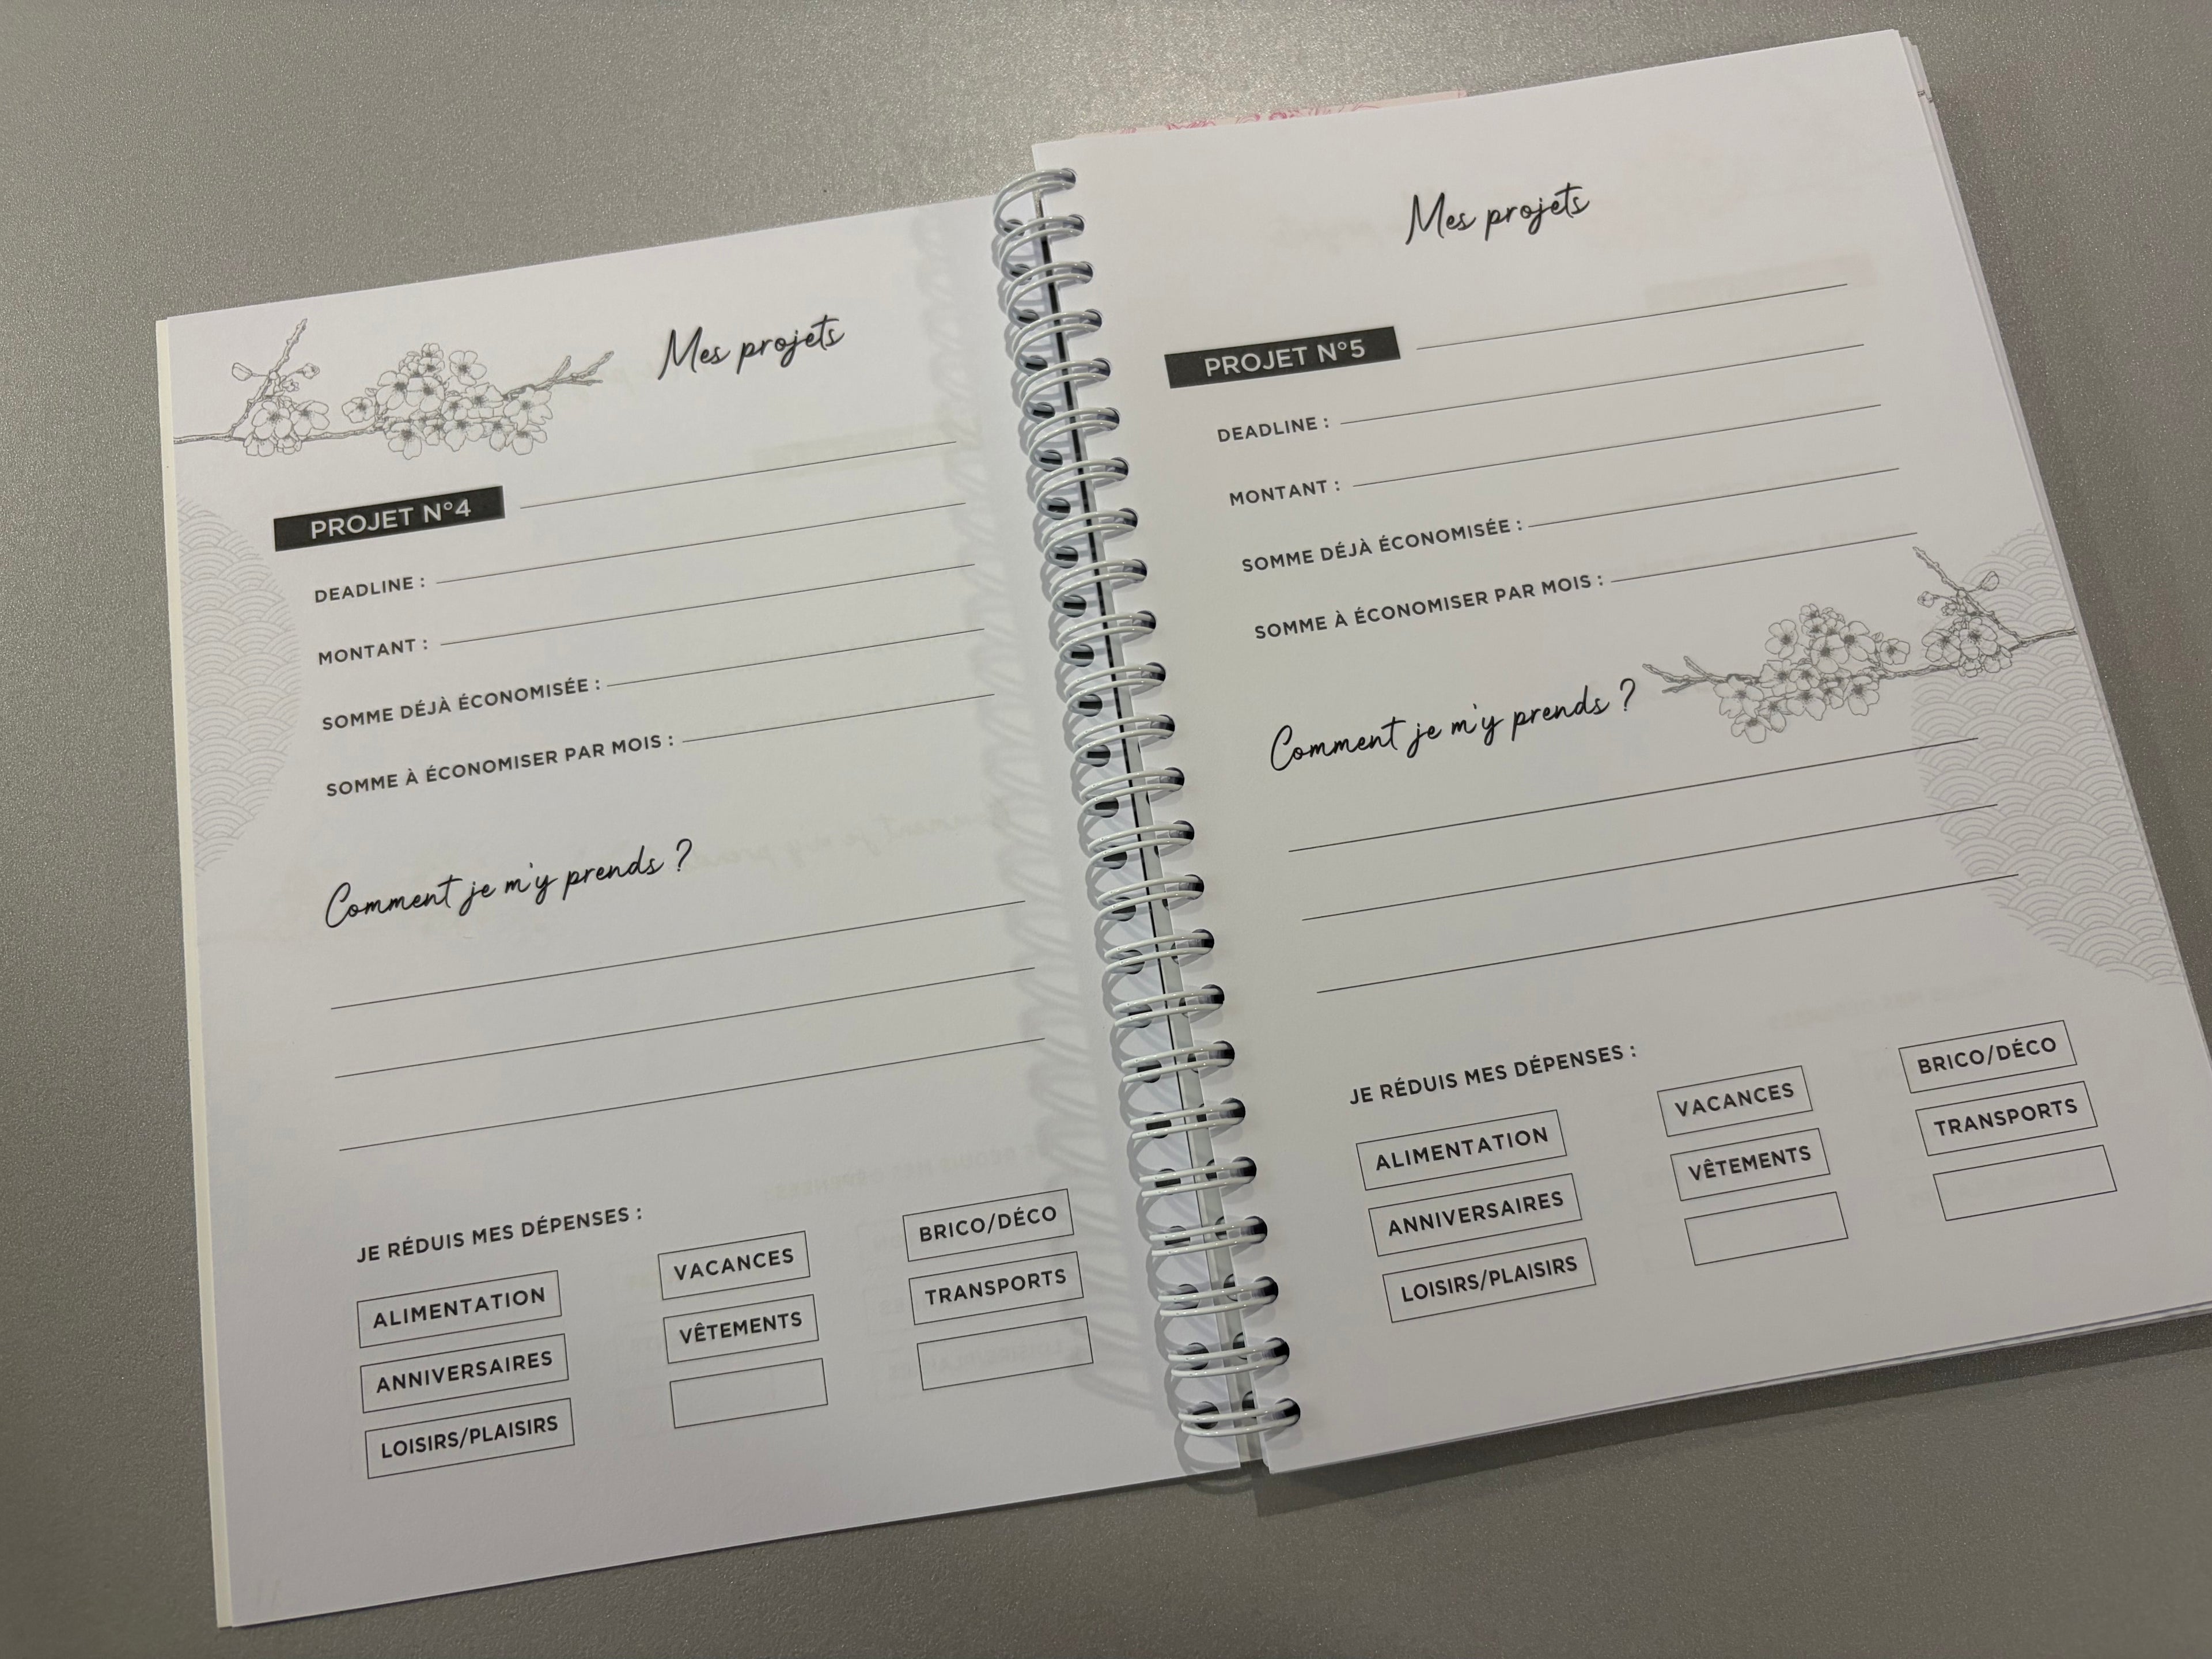 Mes projets
PROJET N°4
DEADLINE :
MONTANT :
SOMME DÉJÀ ÉCONOMISÉE :
SOMME À ÉCONOMISER PAR MOIS :
Comment je m'y prends ?
JE RÉDUIS MES DÉPENSES :
ALIMENTATION
ANNIVERSAIRES
LOISIRS/PLAISIRS
VACANCES
VÊTEMENTS
BRICO/DÉCO
TRANSPORTS
Mes projets
PROJET N°5
DEADLINE :
MONTANT :
SOMME DÉJÀ ÉCONOMISÉE :
SOMME À ÉCONOMISER PAR MOIS :
Comment je m'y prends ?
JE RÉDUIS MES DÉPENSES :
ALIMENTATION
ANNIVERSAIRES
LOISIRS/PLAISIRS
VACANCES
VÊTEMENTS
BRICO/DÉCO
TRANSPORTS